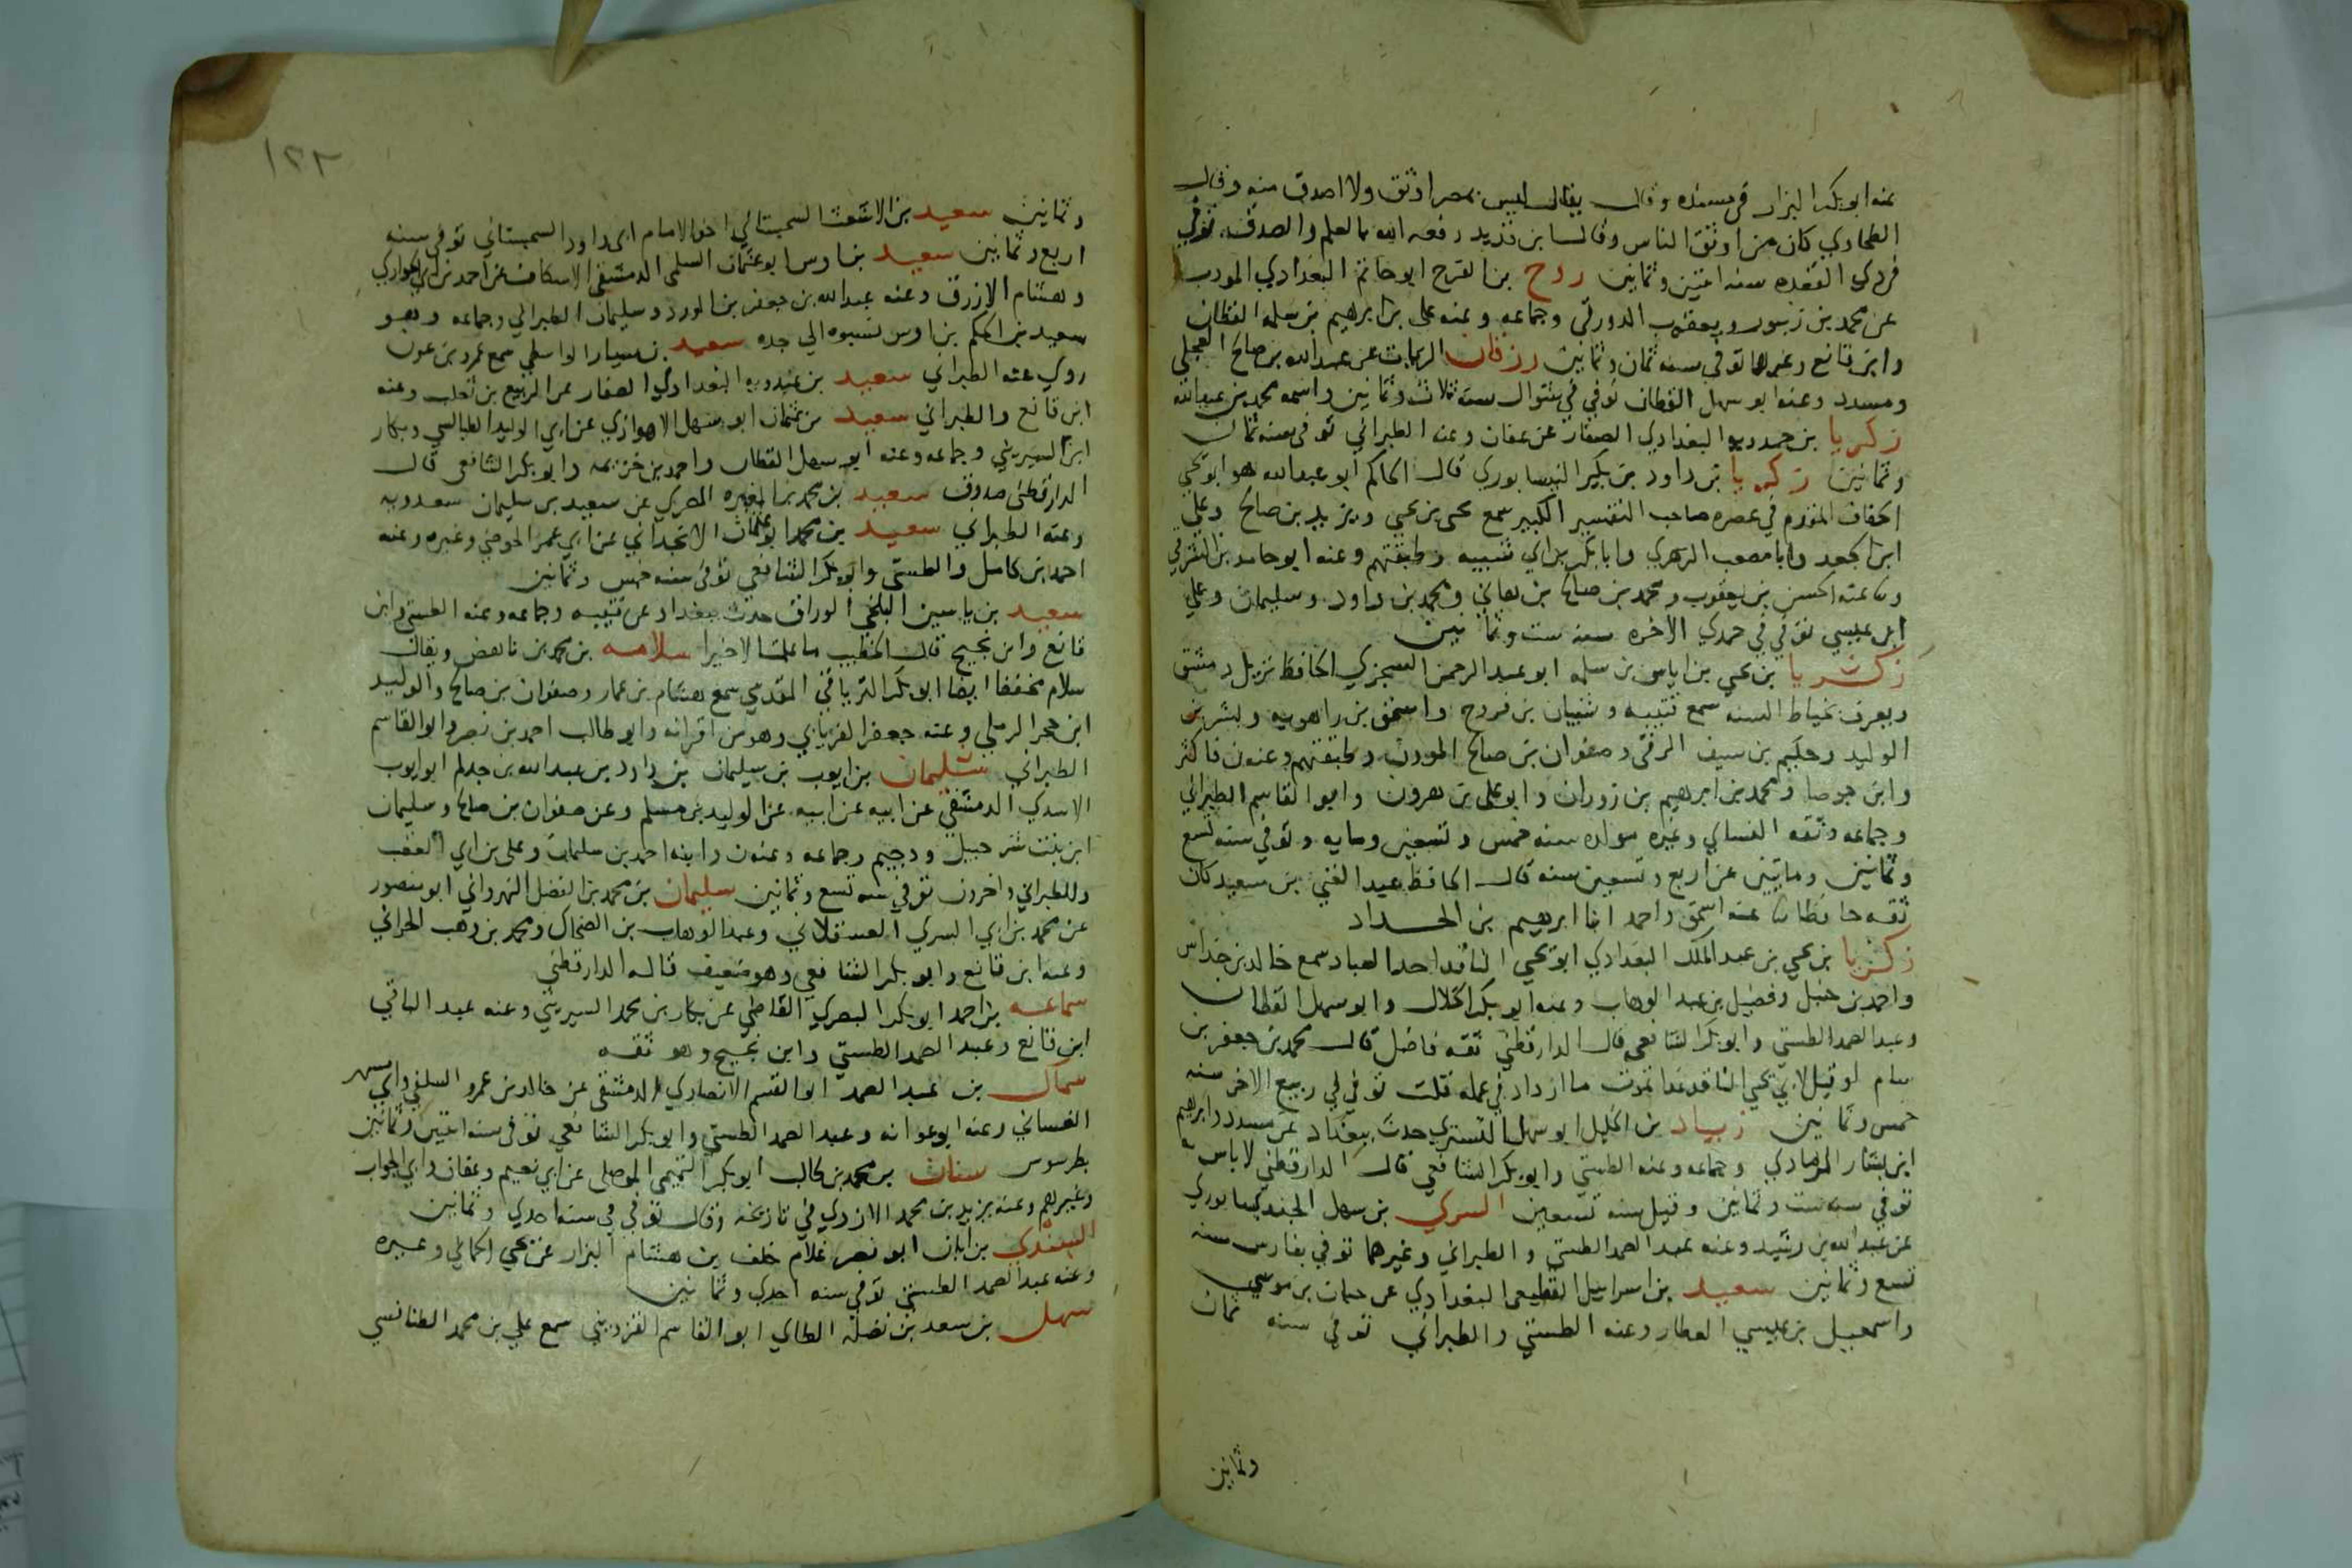 عنه ابو بكر البزار في مسنده وقال يقال ليس بمصر اوثق ولا اصدق منه وقال
الطحاوي كان من اوثق الناس وقال ابن قديد رفعه الله بالعلم والصدق توفي
في ذي القعده سنه اثنين وثمانين روح بن الفرج ابو حاتم البغدادي المودب
عن محمد بن زنبور ويعقوب الدورقي وجماعه وعنه علي بن ابرهيم بن سلمه القطان
وابن قانع وغيرهما توفي سنه ثمان وثمانين رزقان الزيات عن عبدالله بن صالح العجلي
ومسدد وعنه ابو سهل القطان توفي في شوال سنه ثلاث وثمانين واسمه محمد بن عبدالله
زكريا بن حمدويه البغدادي الصفار عن عفان وعنه الطبراني توفي سنه ثمان
وثمانين زكريا بن داود بن بكير النيسابوري قال الحاكم ابو عبدالله هو ابو يحيي
الخفاف المقدم في عصره صاحب التفسير الكبير سمع يحيي بن يحيي ويزيد بن صالح وعلي
ابن الجعد وابا مصعب الزهري وابا بكر بن ابي شيبه وطبقتهم وعنه ابو حامد بن الشرقي
عنه الحسن بن يعقوب ومحمد بن صالح بن هاني ومحمد بن داود بن سليمان وعلي
ابن عيسي توفي في جمدي الاخره سنه ست وثمانين
زكريا بن يحيي بن اياس بن سلمه ابو عبد الرحمن السجزي الحافظ نزيل دمشق
ويعرف بخياط السنه سمع قتيبه وشيبان بن فروخ واسحق بن راهويه وبشر بن
الوليد وحكيم بن سيف الرقي وصفوان بن صالح الموذن وطبقتهم وعنه ن فاكثر
وابن جوصا ومحمد بن ابرهيم بن زوران وابو علي بن هرون وابو القاسم الطبراني
وجماعه وثقه النسائي وغيره مولده سنه خمس وتسعين ومايه وتوفي سنه تسع
وثمانين ومايتين عن اربع وتسعين سنه قال الحافظ عبد الغني بن سعيد كان
ثقه حافظا عنه اسحق واحمد ابنا ابرهيم بن الحداد
زكريا بن يحيي بن عبد الملك البغدادي ابو يحيي الناقد احد العباد سمع خالد بن خداش
واحمد بن حنبل وفضيل بن عبد الوهاب وعنه ابو بكر الخلال وابو سهل القطان
وعبد الصمد الطستي وابو بكر الشافعي قال الدارقطني ثقه فاضل قال محمد بن جعفر بن
سام لو قيل لابي يحيي الناقد غدا تموت ما ازداد في عمله قلت توفي في ربيع الاخر سنه
خمس وثمانين زياد بن الخليل ابو سهل التستري حدث ببغداد عن مسدد وابرهيم
ابن بشار الرمادي وجماعه وعنه الطستي وابو بكر الشافعي قال الدارقطني لا باس به
توفي سنه ست وثمانين وقيل سنه تسعين السري بن سهل الجنديسابوري
عن عبد الله بن رشيد وعنه عبد الصمد الطستي والطبراني وغيرهما توفي بفارس سنه
تسع وثمانين سعيد بن اسرائيل القطيعي البغدادي عن حبان بن موسي
واسمعيل بن عيسي العطار وعنه الطستي والطبراني توفي سنه ثمان
وثمانين
١٢٢
وثمانين سعيد بن الاشعث السجستاني اخو الامام ابي داود السجستاني توفي سنه
اربع وثمانين سعيد بن اوس ابو عثمان السلمي الدمشقي الاسكاف عن احمد بن ابي الحواري
وهشام الازرق وعنه عبدالله بن جعفر بن الورد وسليمان الطبراني وجماعه وهو
سعيد بن الحكم بن اوس نسبوه الي جده سعيد بن سيار الواسطي سمع عمرو بن عون
روي عنه الطبراني سعيد بن عبدويه البغدادي الصفار عن الربيع بن ثعلب وعنه
ابن قانع والطبراني سعيد بن عثمان ابو سهل الاهوازي عن ابي الوليد الطيالسي وبكار
ابن السيريني وجماعه وعنه ابو سهل القطان واحمد بن خزيمه وابو بكر الشافعي قال
الدارقطني صدوق سعيد بن محمد بن المغيره المصري عن سعيد بن سليمان سعدويه
وعنه الطبراني سعيد بن محمد ابو عثمان الانجذاني عن ابي عمر الحوضي وغيره وعنه
احمد بن كامل والطستي وابو بكر الشافعي توفي سنه خمس وثمانين
سعيد بن ياسين البلخي الوراق حدث ببغداد عن قتيبه وجماعه وعنه الطستي وابن
قانع وابن نجيح قال الخطيب ما علمت الا خيرا سلامه بن محمد بن ناهض ويقال
سلام مخففا ايضا ابو بكر الترياقي المقدسي سمع هشام بن عمار وصفوان بن صالح والوليد
ابن حجر الرملي وعنه جعفر الفريابي وهو من اقرانه وابو طالب احمد بن نصر وابو القاسم
الطبراني سليمان بن ايوب بن سليمان بن داود بن عبد الله بن حذلم ابو ايوب
الاسدي الدمشقي عن ابيه عن ابيه عن الوليد بن مسلم وعن صفوان بن صالح وسليمان
ابن بنت شرحبيل ودحيم وجماعه وعنه ن وابنه احمد بن سليمان وعلي بن ابي العقب
والطبراني واخرون توفي سنه تسع وثمانين سليمان بن محمد بن الفضل النهرواني ابو منصور
عن محمد بن ابي السري العسقلاني وعبد الوهاب بن الضحاك ومحمد بن وهب الحراني
وعنه ابن قانع وابو بكر الشافعي وهو ضعيف قاله الدارقطني
سماعه بن احمد ابو بكر البصري القاضي عن بكار بن محمد السيريني وعنه عبد الباقي
ابن قانع وعبد الصمد الطستي وابن نجيح وهو ثقه
سماك بن عبد الصمد ابو القسم الانصاري الدمشقي عن خالد بن عمرو السلفي وابي مسهر
الغساني وعنه ابو عوانه وعبد الصمد الطستي وابو بكر الشافعي توفي سنه اثنين وثمانين
بطرسوس سنان بن محمد بن طالب ابو بكر التميمي الموصلي عن ابي نعيم وعفان وابي الجواب
وغيرهم وعنه يزيد بن محمد الازدي في تاريخه وقال توفي في سنه احدي وثمانين
السندي بن ابان ابو نصر غلام خلف بن هشام البزار عن يحيي الحماني وغيره
وعنه عبد الصمد الطستي توفي سنه احدي وثمانين
سهل بن سعد بن نضله الطاي ابو القاسم القزويني سمع علي بن محمد الطنافسي